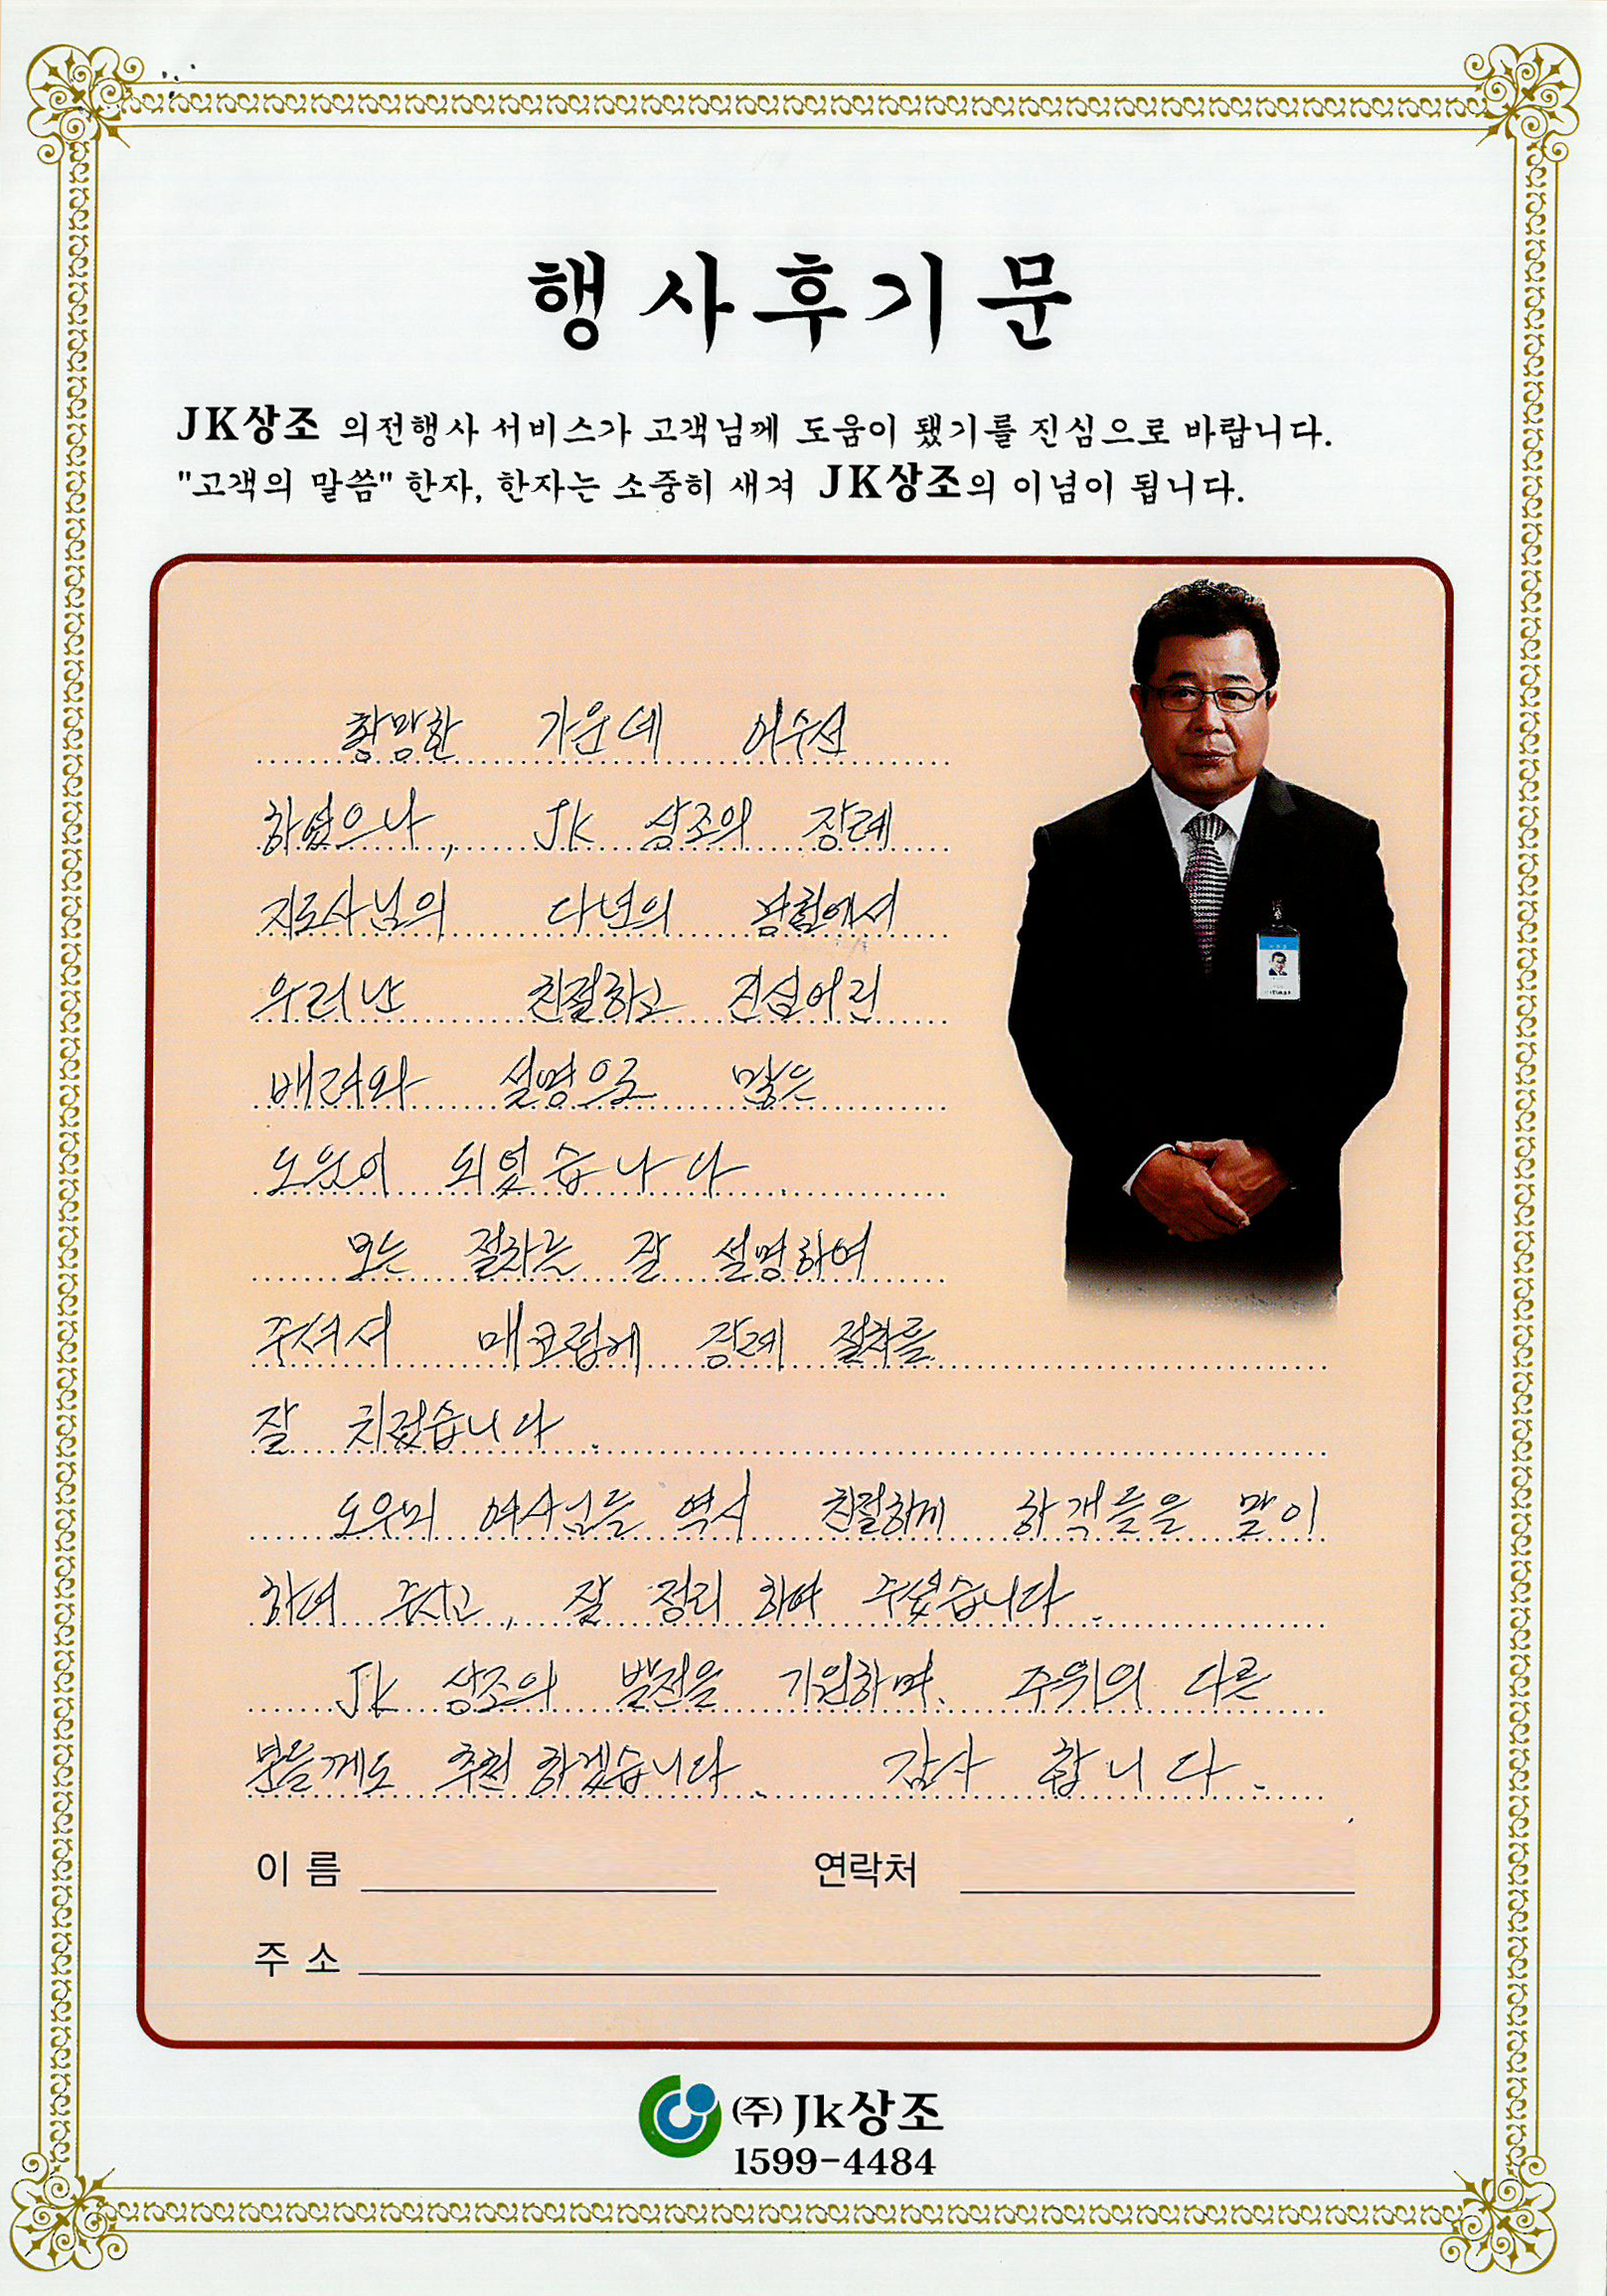 행사후기문
JK상조 의전행사 서비스가 고객님께 도움이 됐기를 진심으로 바랍니다.
"고객의 말씀" 한자, 한자는 소중히 새겨 JK상조의 이념이 됩니다.
황망한 가운데 어수선
하였으나, JK 상조의 장례
지도사님의 다년의 경험에서
우러난 친절하고 진심어린
배려와 설명으로 많은
도움이 되었습니다.
모든 절차를 잘 설명하여
주셔서 매끄럽게 장례 절차를
잘 치렀습니다.
도우미 여사님들 역시 친절하게 하객들을 맞이
하여 주시고, 잘 정리 하여 주셨습니다.
Jk 상조의 발전을 기원하며, 주위의 다른
분들께도 추천 하겠습니다. 감사 합니다.
이 름
연락처
주 소
(주) Jk상조
1599-4484